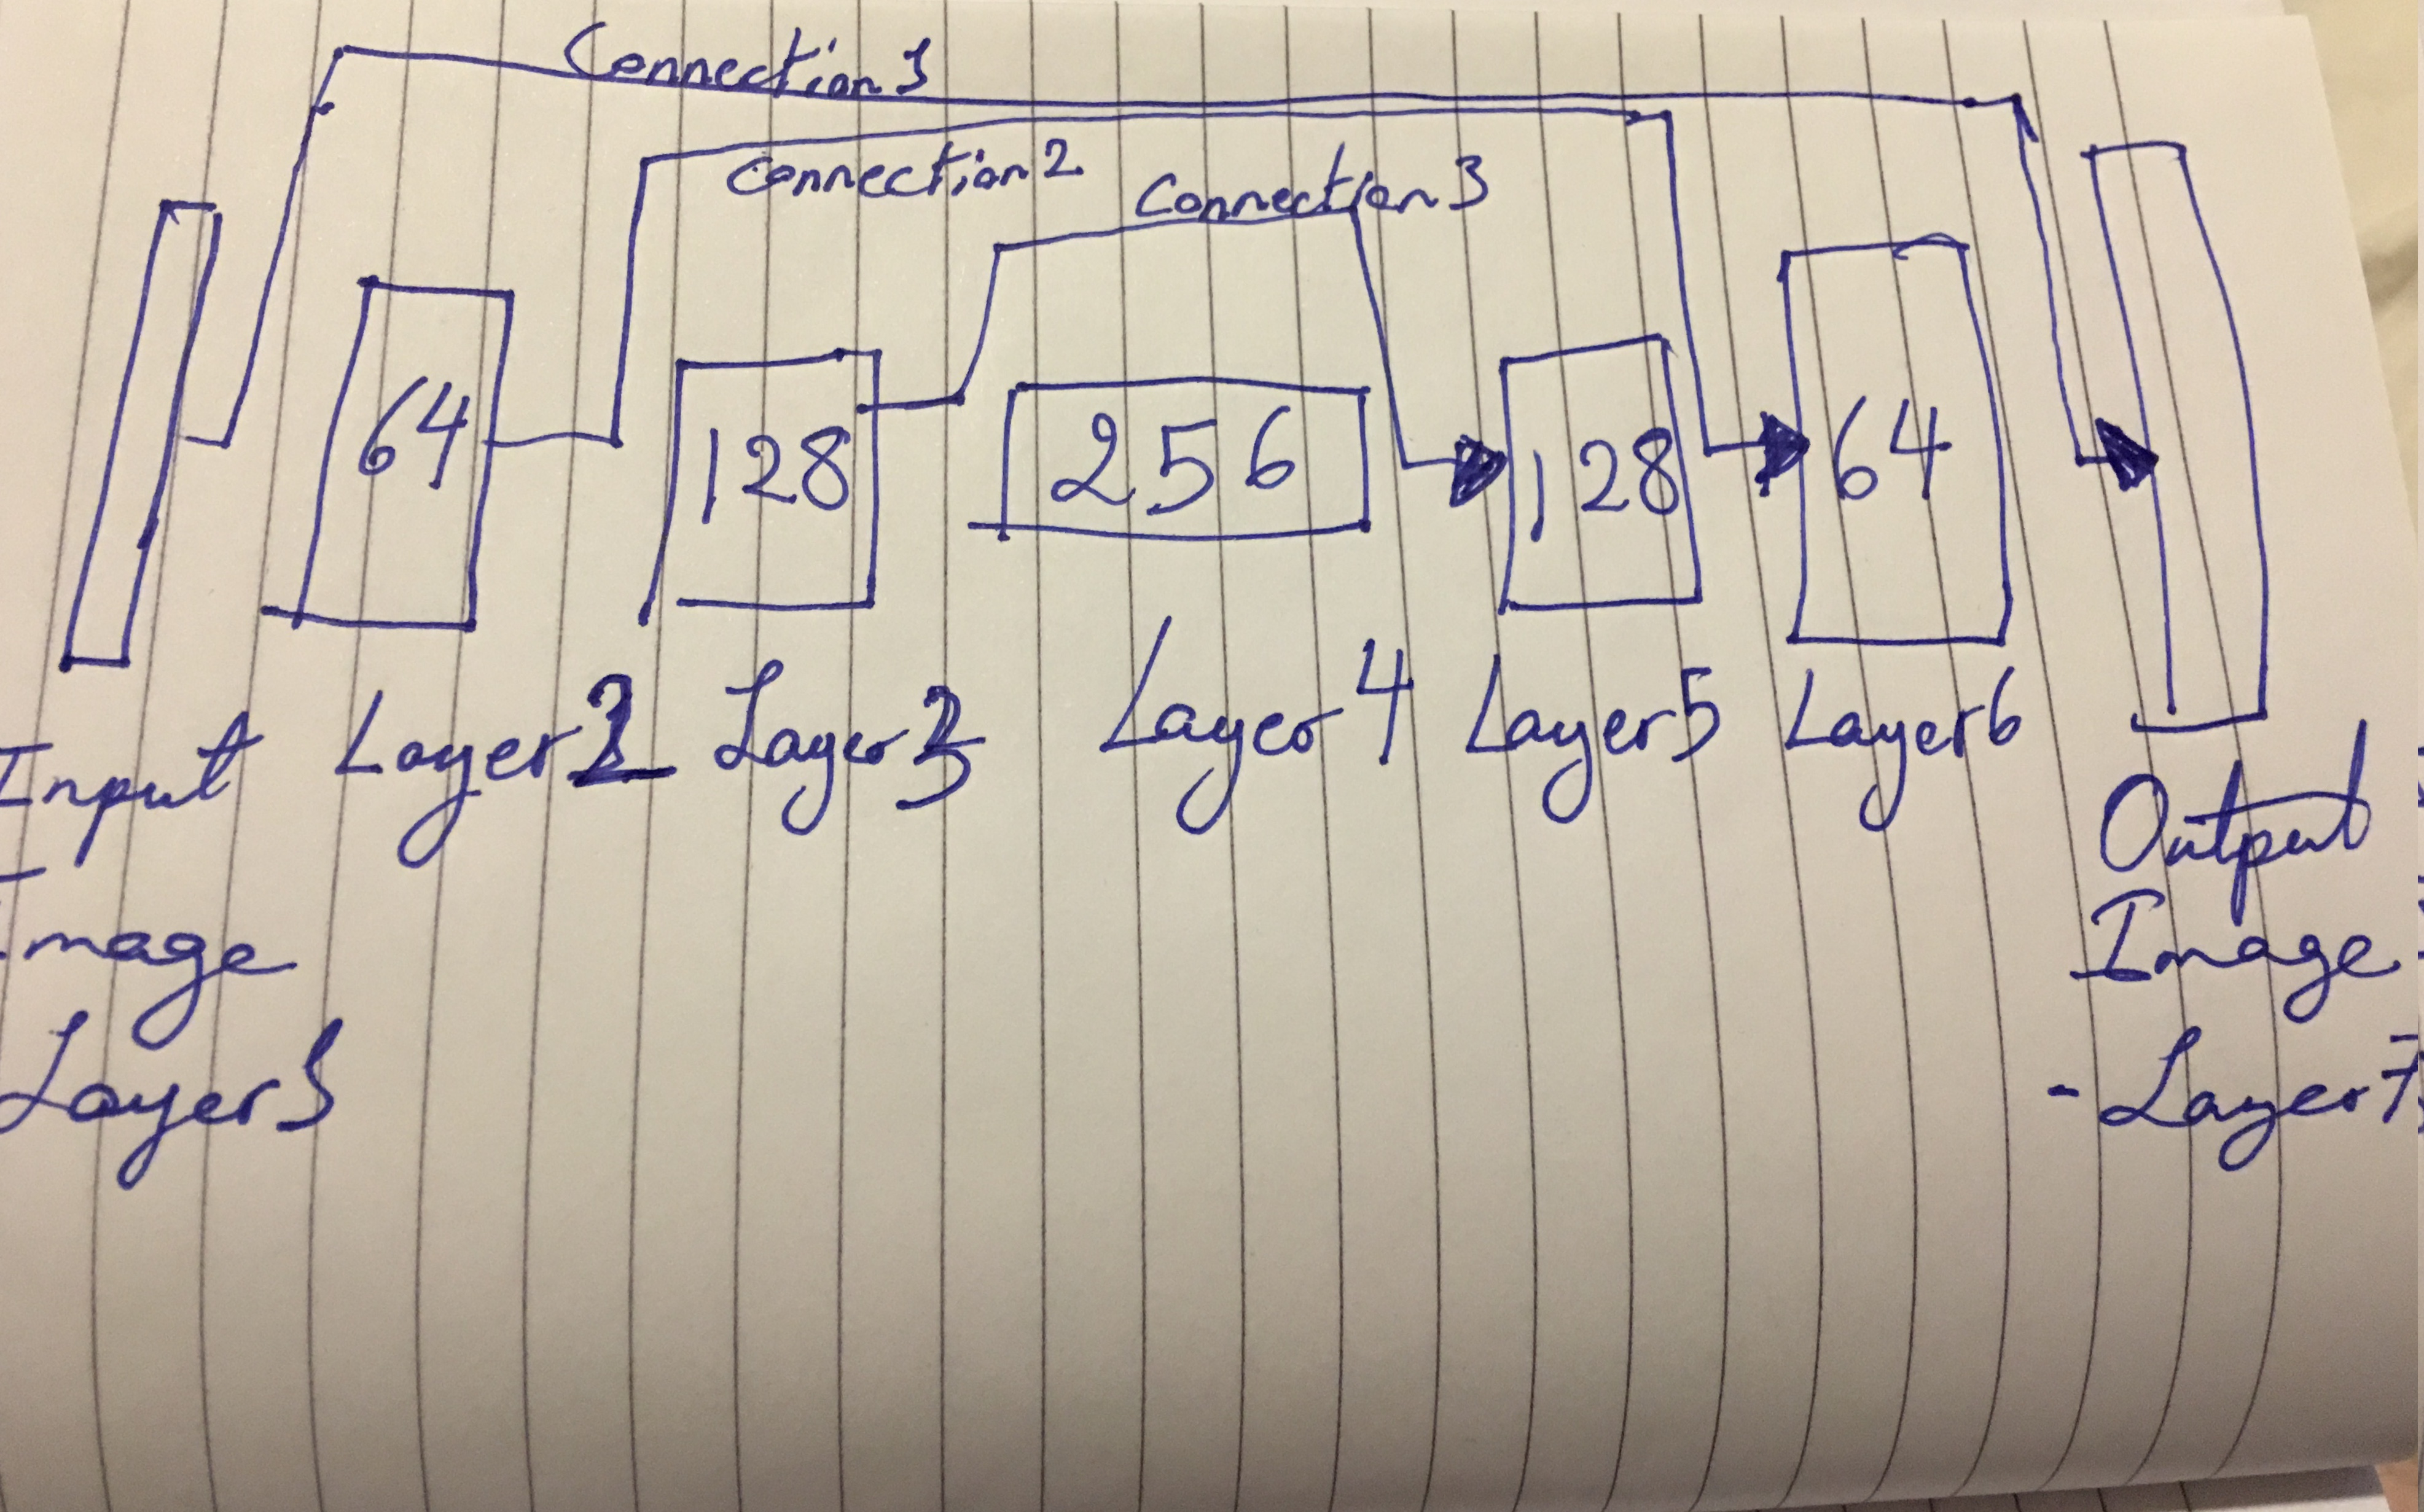 Connection 1
Connection 2
Connection 3
64
128
256
128
64
Input
Image
Layer 1
Layer 2
Layer 3
Layer 4
Layer 5
Layer 6
Output
Image
- Layer 7